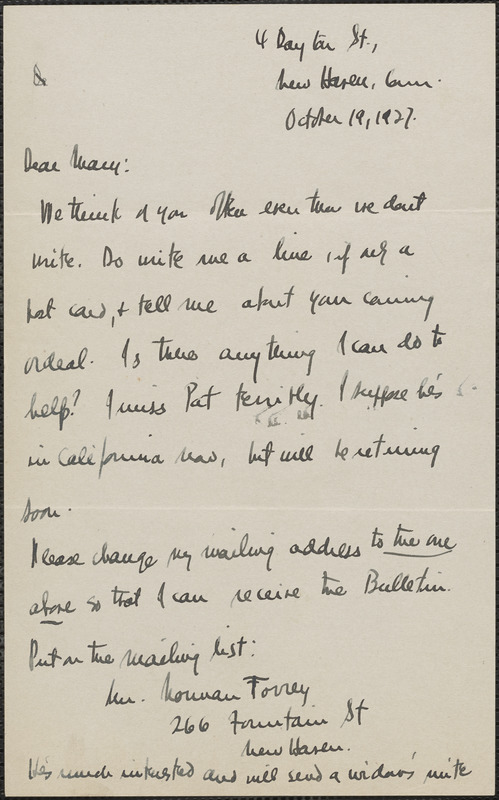 4 Dayton St.,
New Haven, Conn.
October 19, 1927.
Dear Mary:
We think of you often even tho we don't
write. Do write me a line, if only a
post card, & tell me about your coming
ordeal. Is there anything I can do to
help? I miss Pat terribly. I suppose he's
in California now, but will be returning
soon.
Please change my mailing address to the one
above so that I can receive the Bulletin.
Put on the mailing list:
Mr. Norman
266 Fountain St
New Haven.
He's much interested and will send a widow's mite